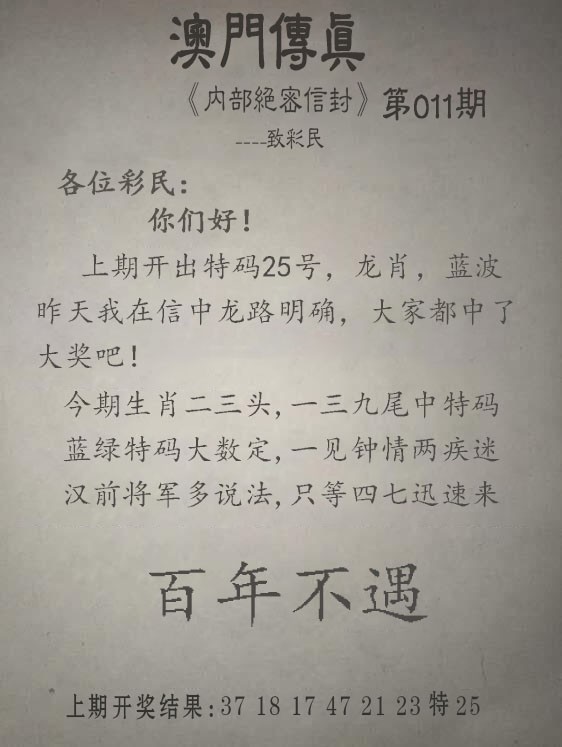 澳門傳眞
《内部絕密信封》第011期
----致彩民
各位彩民：
你们好！
上期开出特码25号，龙肖，蓝波
昨天我在信中龙路明确，大家都中了
大奖吧！
今期生肖二三头,一三九尾中特码
蓝绿特码大数定,一见钟情两疾迷
汉前将军多说法,只等四七迅速来
百年不遇
上期开奖结果:37 18 17 47 21 23 特 25